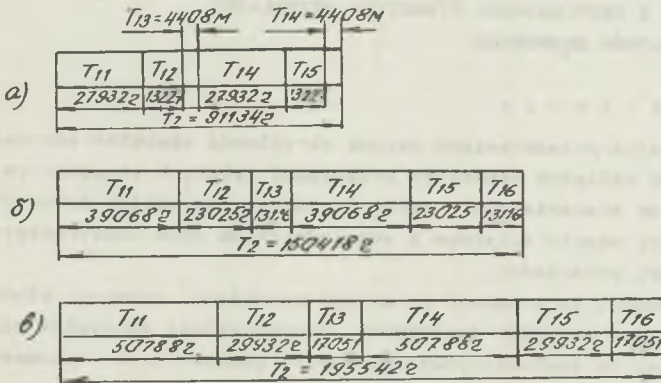 T13=4408м T14=4408м
T11 T12 T14 T15
а) 27932г 13227 27932г
T2 = 91134г
T11 T12 T13 T14 T15 T16
б) 39068г 23025г 13116 39068г 23025 13116
T2 = 150418г
T11 T12 T13 T14 T15 T16
в) 50788г 29932г 17051 50788г 29932г 17051
T2 = 195542г